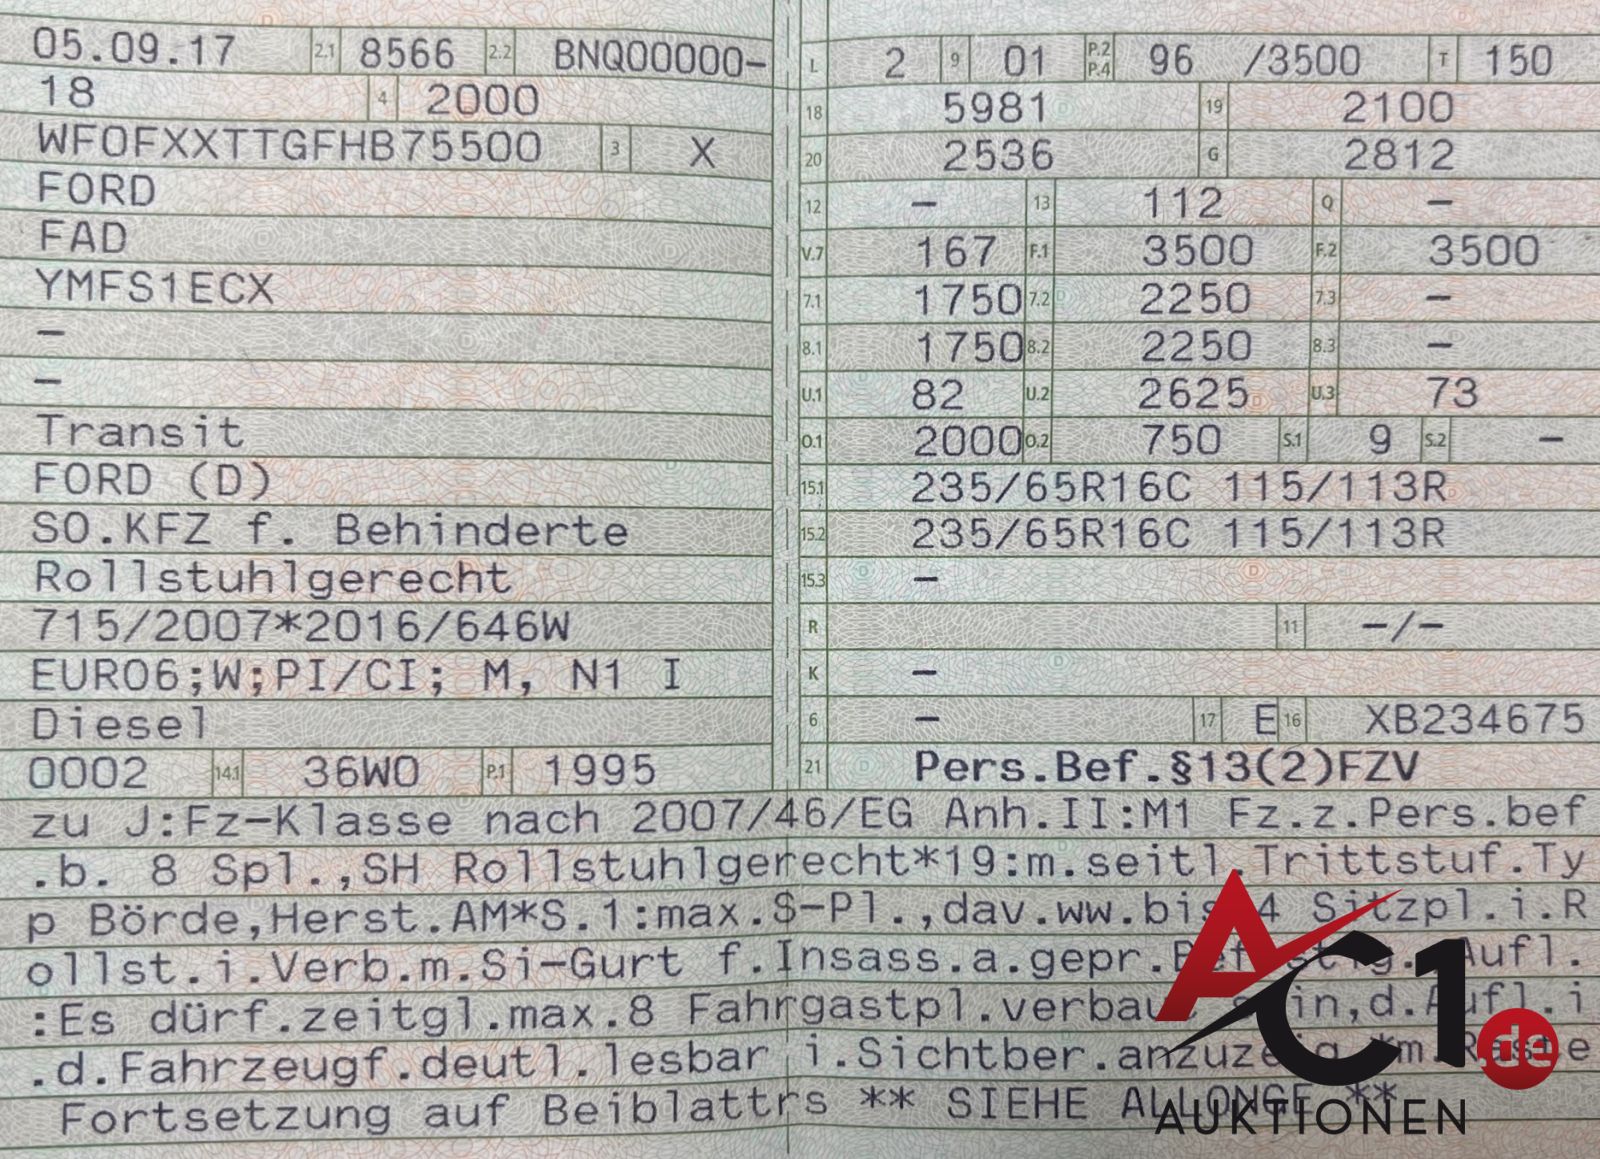 05.09.17 2.1 8566 2.2 BNQ00000-
18 4 2000
WF0FXXTTGFHB75500 3 X
FORD
FAD
YMFS1ECX
–
–
Transit
FORD (D)
SO.KFZ f. Behinderte
Rollstuhlgerecht
715/2007*2016/646W
EURO6;W;PI/CI; M, N1 I
Diesel
0002 14.1 36W0 P.1 1995
L 2 9 01 P.2 P.4 96 /3500 T 150
18 5981 19 2100
20 2536 G 2812
12 – 13 112 Q –
V.7 167 F.1 3500 F.2 3500
7.1 1750 7.2 2250 7.3 –
8.1 1750 8.2 2250 8.3 –
U.1 82 U.2 2625 U.3 73
O.1 2000 O.2 750 S.1 9 S.2 –
15.1 235/65R16C 115/113R
15.2 235/65R16C 115/113R
15.3 –
R 11 –/–
K –
6 – 17 E 16 XB234675
21 Pers.Bef.§13(2)FZV
zu J:Fz-Klasse nach 2007/46/EG Anh.II:M1 Fz.z.Pers.bef
.b. 8 Spl.,SH Rollstuhlgerecht*19:m.seitl.Trittstuf.Ty
p Börde,Herst.AM*S.1:max.S-Pl.,dav.ww.bis 4 Sitzpl.i.R
ollst.i.Verb.m.Si-Gurt f.Insass.a.gepr. Aufl.
:Es dürf.zeitgl.max.8 Fahrgastpl.verbau in,d.Aufl.i
.d.Fahrzeugf.deutl.lesbar i.Sichtber.anzuze
Fortsetzung auf Beiblattrs ** SIEHE ALLONGE **
AC1.de
AUKTIONEN